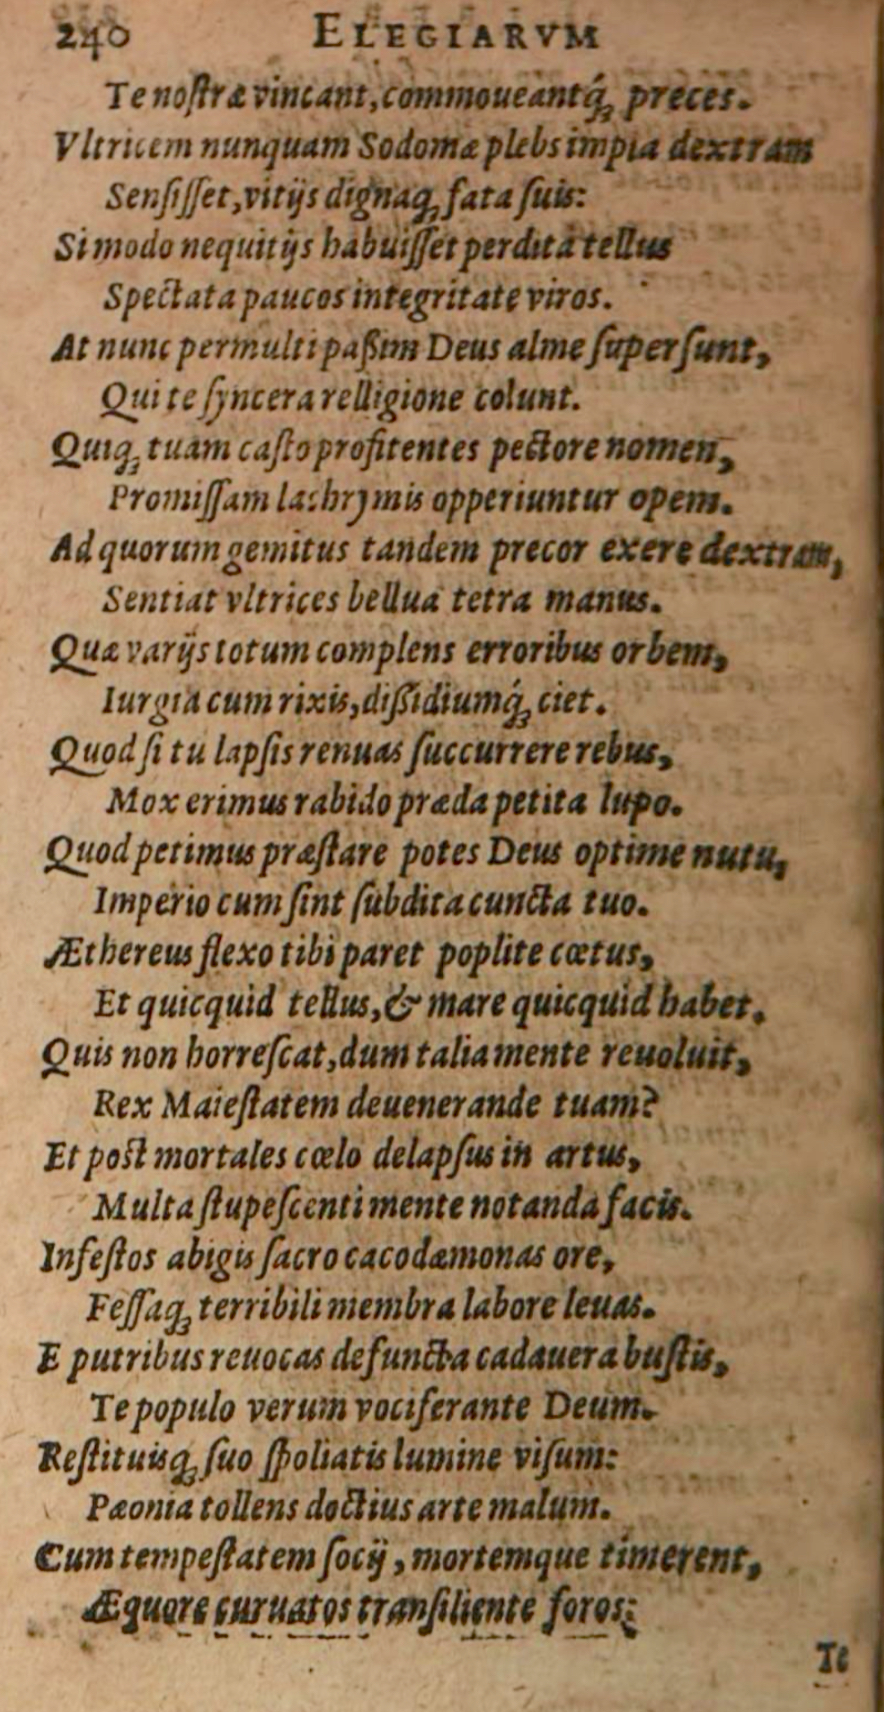 240 ELEGIARVM
Te noſtræ vincant, commoueantq́ꝫ preces.
Vltricem nunquam Sodomæ plebs impia dextram
Senſiſſet, vitijs dignaqꝫ fata ſuis:
Si modo nequitijs habuiſſet perdita tellus
Spectata paucos integritate viros.
At nunc permulti paßim Deus alme ſuperſunt,
Qui te ſyncera relligione colunt.
Quiqꝫ tuam caſto profitentes pectore nomen,
Promiſſam lachrymis opperiuntur opem.
Ad quorum gemitus tandem precor exere dextram,
Sentiat vltrices bellua tetra manus.
Quæ varijs totum complens erroribus orbem,
Iurgia cum rixis, dißidiumq́ꝫ ciet.
Quod ſi tu lapſis renuas ſuccurrere rebus,
Mox erimus rabido præda petita lupo.
Quod petimus præſtare potes Deus optime nutu,
Imperio cum ſint ſubdita cuncta tuo.
Æthereus flexo tibi paret poplite cœtus,
Et quicquid tellus, & mare quicquid habet.
Quis non horreſcat, dum talia mente reuoluit,
Rex Maieſtatem deuenerande tuam?
Et poſt mortales cœlo delapſus in artus,
Multa ſtupeſcenti mente notanda facis.
Infeſtos abigis ſacro cacodæmonas ore,
Feſſaqꝫ terribili membra labore leuas.
E putribus reuocas defuncta cadauera buſtis,
Te populo verum vociferante Deum.
Reſtituisqꝫ ſuo ſpoliatis lumine viſum:
Pæonia tollens doctius arte malum.
Cum tempeſtatem ſocij, mortemque timerent,
Æquore curuatos tranſiliente foros:
Te